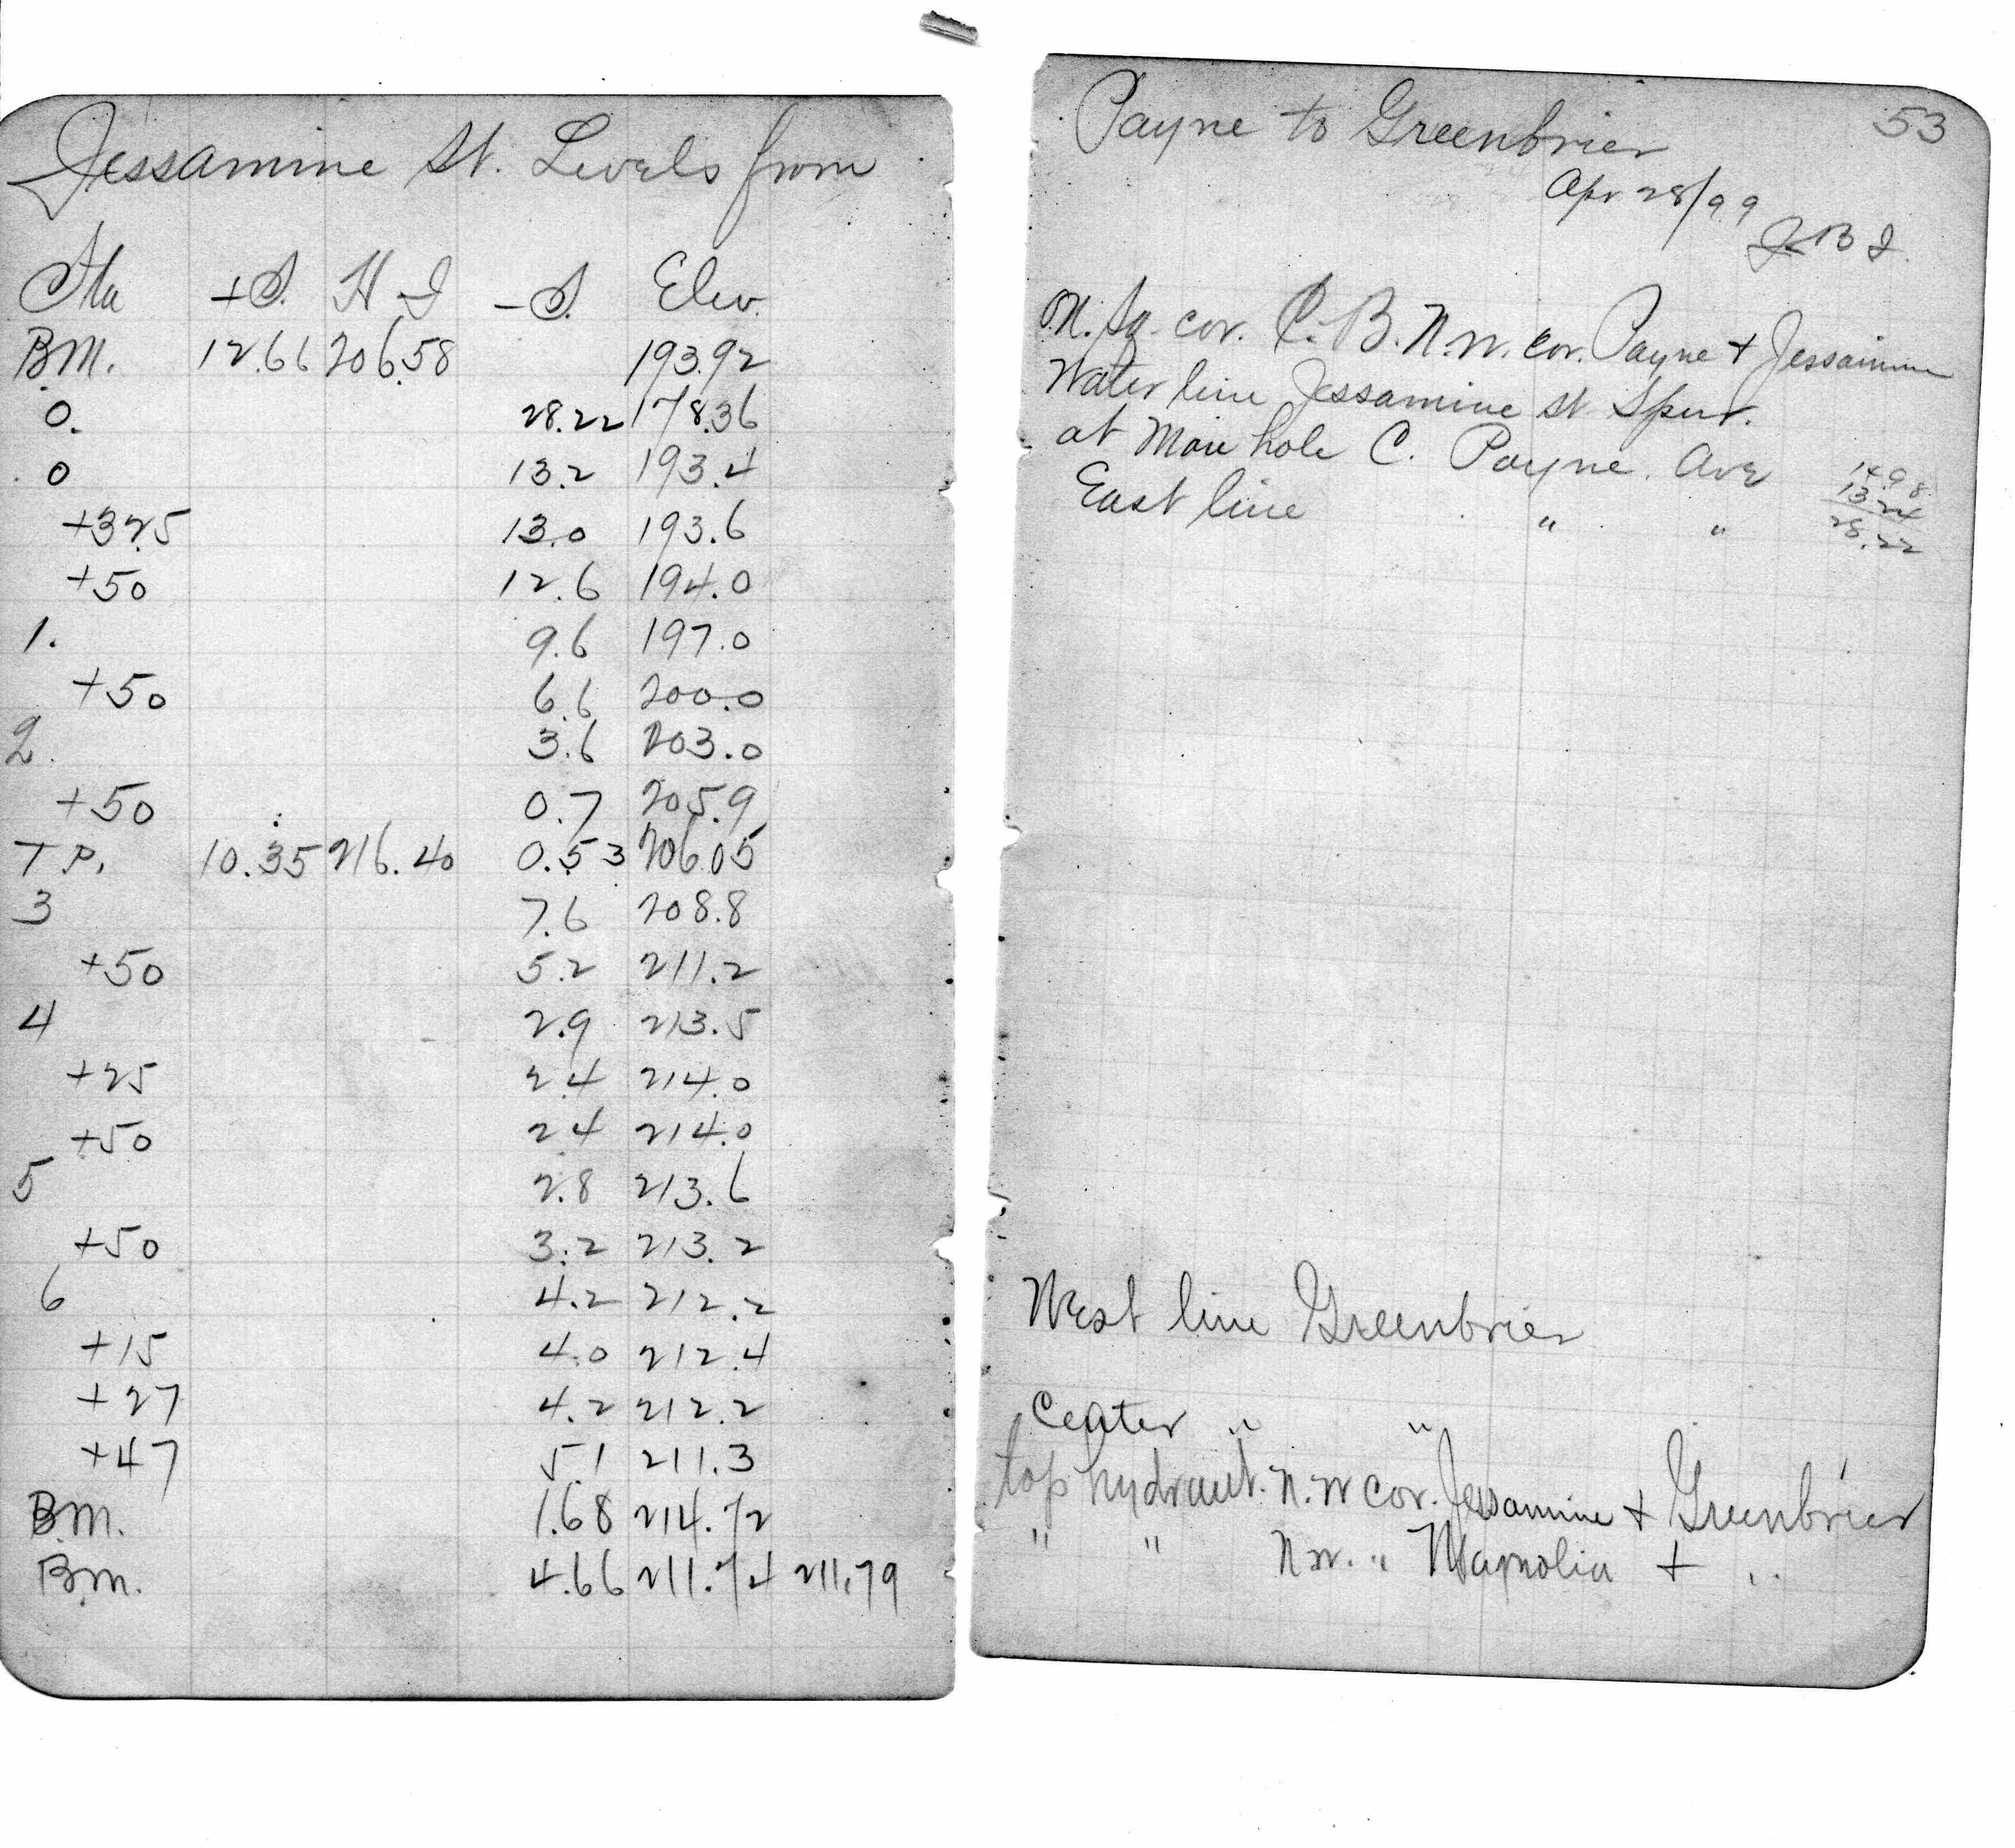 Jessamine St. Levels from
Sta +S. H I -S. Elev.
B.M. 12.66 206.58 193.92
0. 28.22 178.36
0 13.2 193.4
+32.5 13.0 193.6
+50 12.6 194.0
1. 9.6 197.0
+50 6.6 200.0
2. 3.6 203.0
+50 0.7 205.9
T.P. 10.35 216.40 0.53 206.05
3 7.6 208.8
+50 5.2 211.2
4 2.9 213.5
+25 2.4 214.0
+50 2.4 214.0
5 2.8 213.6
+50 3.2 213.2
6 4.2 212.2
+15 4.0 212.4
+27 4.2 212.2
+47 5.1 211.3
B.M. 1.68 214.72
B.M. 4.66 211.74 211.79
Payne to Greenbrier 53
Apr 28/99
cor. C.B. N.W. cor. Payne + Jessamine
Water line Jessamine St. Spur.
at Man hole C. Payne. Ave
East line " "
14.98
13.24
28.22
West line Greenbrier
Center " "
top hydrant. N.W cor. Jessamine + Greenbrier
" " N.W. " Magnolia + "